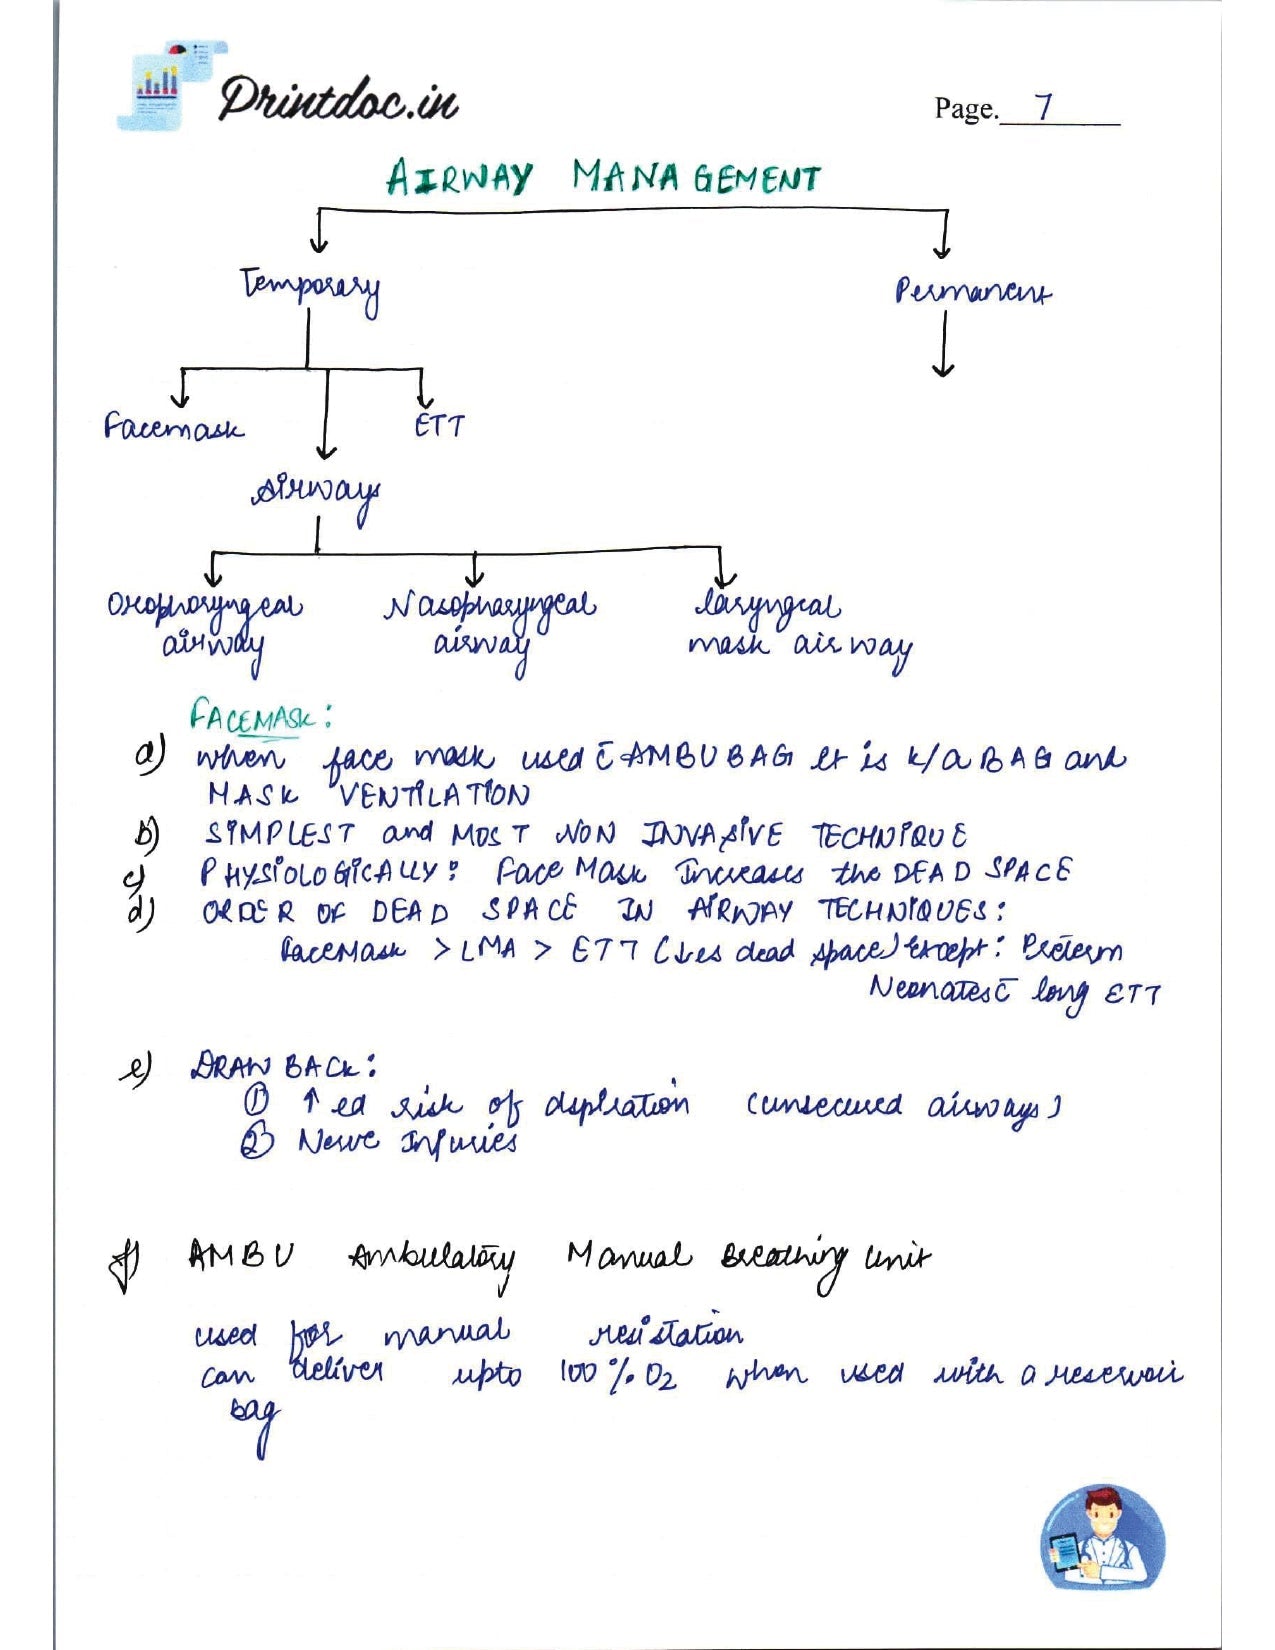 Printdoc.in
Page. 7
AIRWAY MANAGEMENT
Temporary
Permanent
Facemask
ETT
Airways
Oropharyngeal airway
Nasopharyngeal airway
laryngeal mask airway
FACEMASK:
a) when face mask used c̄ AMBU BAG it is k/a BAG and
MASK VENTILATION
b) SIMPLEST and MOST NON INVASIVE TECHNIQUE
c) PHYSIOLOGICALLY: Face Mask Increases the DEAD SPACE
d) ORDER OF DEAD SPACE IN AIRWAY TECHNIQUES:
FaceMask > LMA > ETT (↓es dead space) Except: Preterm
Neonates c̄ long ETT
e) DRAW BACK:
① ↑ed risk of aspiration (unsecured airways)
② Nerve Injuries
f) AMBU Ambulatory Manual Breathing unit
used for manual resistation
can deliver upto 100% O2 when used with a reservoir
bag